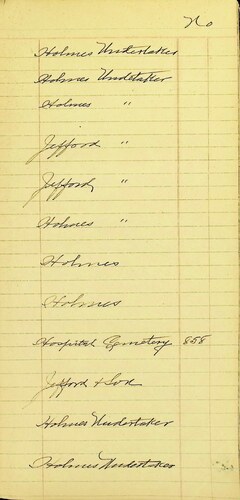 No
Holmes Undertaker
Holmes Undetaker
Holmes "
Jefford "
Jefford "
Holmes "
Holmes
Holmes
Hospital Cemetery 858
Jefford & Son
Holmes Undertaker
Holmes Undertaker